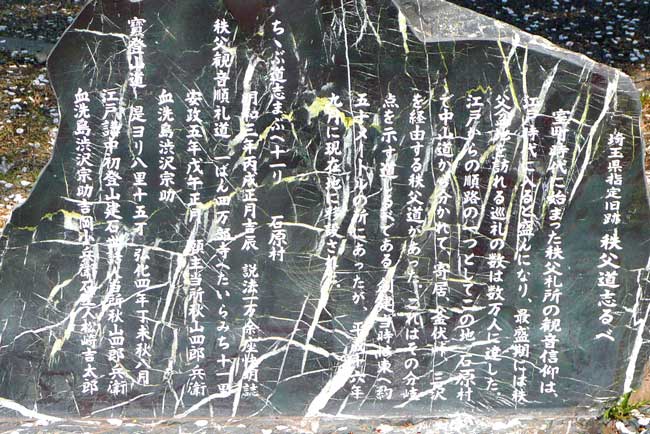 埼玉県指定旧跡 秩父道志るべ
室町時代に始まった秩父札所の観音信仰は、
江戸時代に入ると盛んになり、最盛期には秩
父盆地を訪れる巡礼の数は数万人に達した。
江戸からの順路の一つとしてこの地(石原村)
で中山道から分かれて、寄居、釜伏峠、三沢
を経由する秩父道があった。これはその分岐
点を示す道しるべである。建当時は東へ約
五十メートルの所にあったが、平成十六年
に現在地に移設された。
ちゝぶ道志まぶへ十一り 石原村
三年丙戌正月吉辰 説法一万余座
秩父観音順礼道 一ばん四万部寺へたいらみち十一里
安政五年戊午正月 願主当所秋山四郎兵衛
血洗島渋沢宗助
宝登山道 是ヨリ八里十五丁 弘化四年丁未秋八月
江戸講中初登山建石 当所秋山四郎兵衛
血洗島渋沢宗助 吉岡小兵衛 石工人松崎吉太郎